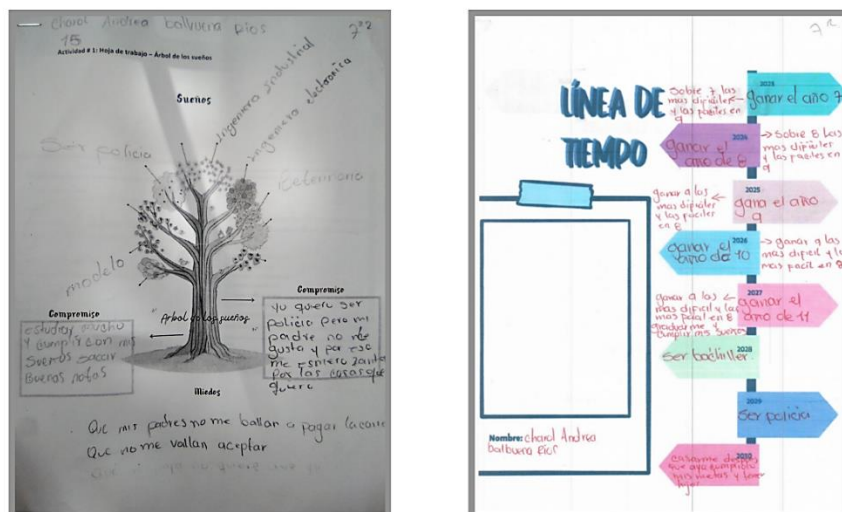 charol Andrea balbuena Rios
15
7°2
Actividad # 1: Hoja de trabajo – Árbol de los sueños
Sueños
ingeniera industrial
ingeniera electronica
Ser policia
modelo
Compromiso
estudiar mucho
y cumplir con mis
sueños sacar
Buenos notas
Arbol de los sueños
Compromiso
yo quiero ser
policia pero mi
padre no me
gusta y por eso
me esmero
por las cosas que
quiero
Miedos
Que mis padres no me ballan a pagar la
Que no me vallan aceptar
7
LÍNEA DE
TIEMPO
2023
ganar el año 7
Sobre 7 las
mas dificiler
y las faciles en
9
2024
ganar el
año de 8
Sobre 8 las
mas dificiler
y las faciles en
9
2025
gana el año
9
ganar a las
mas dificiler
y las faciler
en 8
2026
ganar el
año de 10
ganar a las
mas dificil y las
mas facil en 8
2027
ganar el
año de 11
ganar a las
mas dificil y las
mas facil en 8
graduarme y
cumplir mis sueños
2028
ser bachiller
2029
Ser policia
2030
casarme despues
que aya cumplido
mis metas y tener
hijos
Nombre: charol Andrea
balbuena Rios